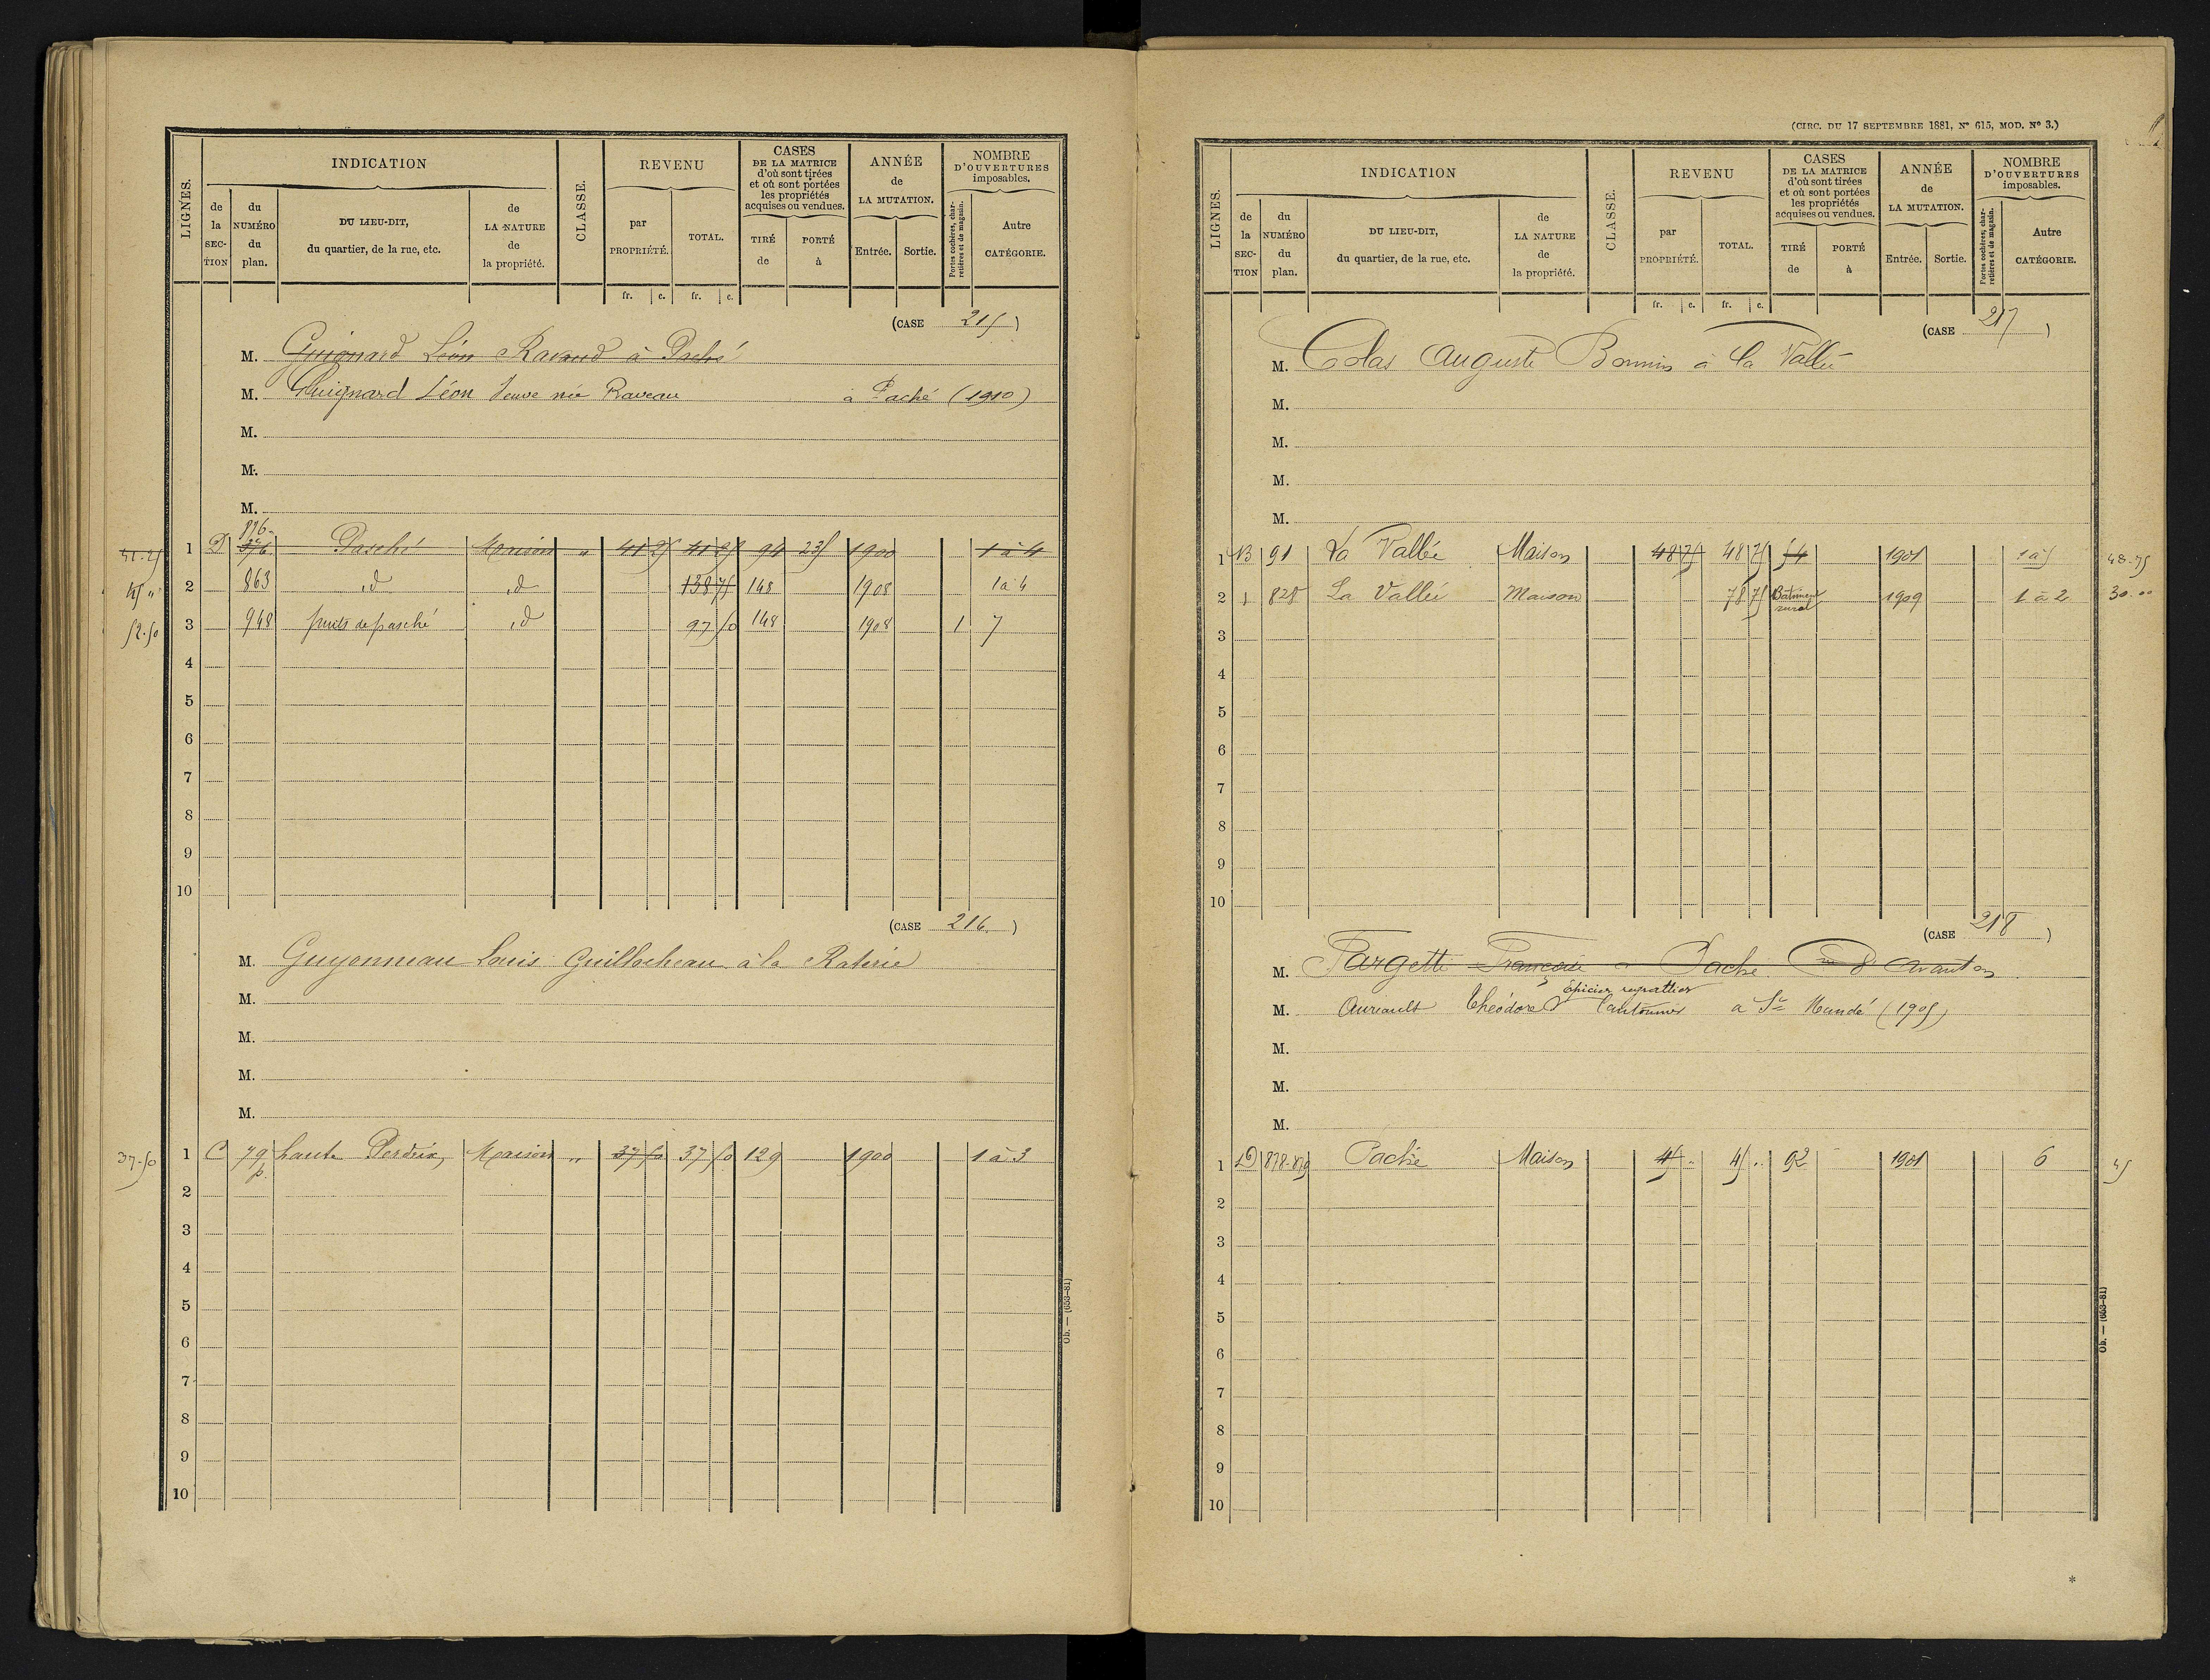 LIGNES.
INDICATION
de la SECTION
du NUMÉRO du plan.
DU LIEU-DIT, du quartier, de la rue, etc.
de LA NATURE de la propriété.
CLASSE.
REVENU
par PROPRIÉTÉ.
TOTAL.
fr. c. fr. c.
CASES DE LA MATRICE d'où sont tirées et où sont portées les propriétés acquises ou vendues.
TIRÉ de
PORTÉ à
ANNÉE de LA MUTATION.
Entrée. Sortie.
NOMBRE D'OUVERTURES imposables.
Portes cochères, charretières et de magasin.
Autre CATÉGORIE.
(CASE 215)
M. Guignard Léon Ravaud à Paché
M. Guignard Léon Veuve née Raveau à Paché (1910)
M.
M.
M.
41.25 1 D 876 Pasché Maison " 41 25 41 25 94 235 1900 1 à 4
45 " 2 863 id id 138 75 148 1908 1 à 4
52.50 3 948 puits de pasché id 97 50 148 1908 1 7
4
5
6
7
8
9
10
(CASE 216.)
M. Guyonneau Louis Guillocheau à la Raterie
M.
M.
M.
M.
37.50 1 C 79 p. haute Perdrix, Maison " 37 50 37 50 129 1900 1 à 3
2
3
4
5
6
7
8
9
10
Ob. — (653-81)
(CIRC. DU 17 SEPTEMBRE 1881, N° 615, MOD. N° 3.)
LIGNES.
INDICATION
de la SECTION
du NUMÉRO du plan.
DU LIEU-DIT, du quartier, de la rue, etc.
de LA NATURE de la propriété.
CLASSE.
REVENU
par PROPRIÉTÉ.
TOTAL.
fr. c. fr. c.
CASES DE LA MATRICE d'où sont tirées et où sont portées les propriétés acquises ou vendues.
TIRÉ de
PORTÉ à
ANNÉE de LA MUTATION.
Entrée. Sortie.
NOMBRE D'OUVERTURES imposables.
Portes cochères, charretières et de magasin.
Autre CATÉGORIE.
(CASE 217)
M. Colas Auguste Bonnin à la Vallée
M.
M.
M.
M.
1 B 91 La Vallée Maison 48 75 48 75 54 1901 1 à 5 48.75
2 828 La Vallée Maison 78 75 Bâtiment rural 1909 1 à 2 30.00
3
4
5
6
7
8
9
10
(CASE 218)
M. Fargette Françoise à Paché Avanton
Epicier regrattier
M. Auriault Théodore Cantonnier à St Mandé (1905)
M.
M.
M.
1 D 878-879 Paché Maison 45 .. 45 .. 92 1901 6 45
2
3
4
5
6
7
8
9
10
Ob. — (653-81)
*